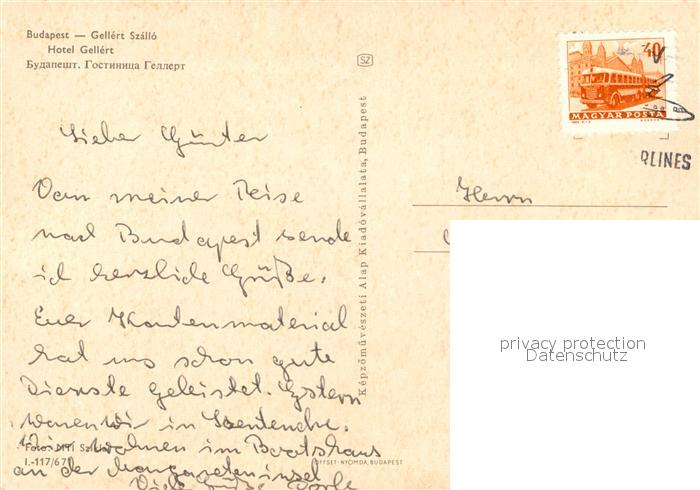 Budapest — Gellért Szálló
Hotel Gellért
Будапешт. Гостиница Геллерт
SZ
40
MAGYAR POSTA
RLINES
Lieber Günter
Von meiner Reise
nach Budapest sende
ich herzliche Grüße.
Euer Kartenmaterial
hat uns schon gute
Dienste geleistet. Gestern
waren wir in Szentendre.
Wir wohnen im Bootshaus
an der Margareteninsel
Viele Grüße
Foto: MTI
I.-117/671
OFFSET-NYOMDA, BUDAPEST
Képzőművészeti Alap Kiadóvállalata, Budapest
Herrn
privacy protection
Datenschutz